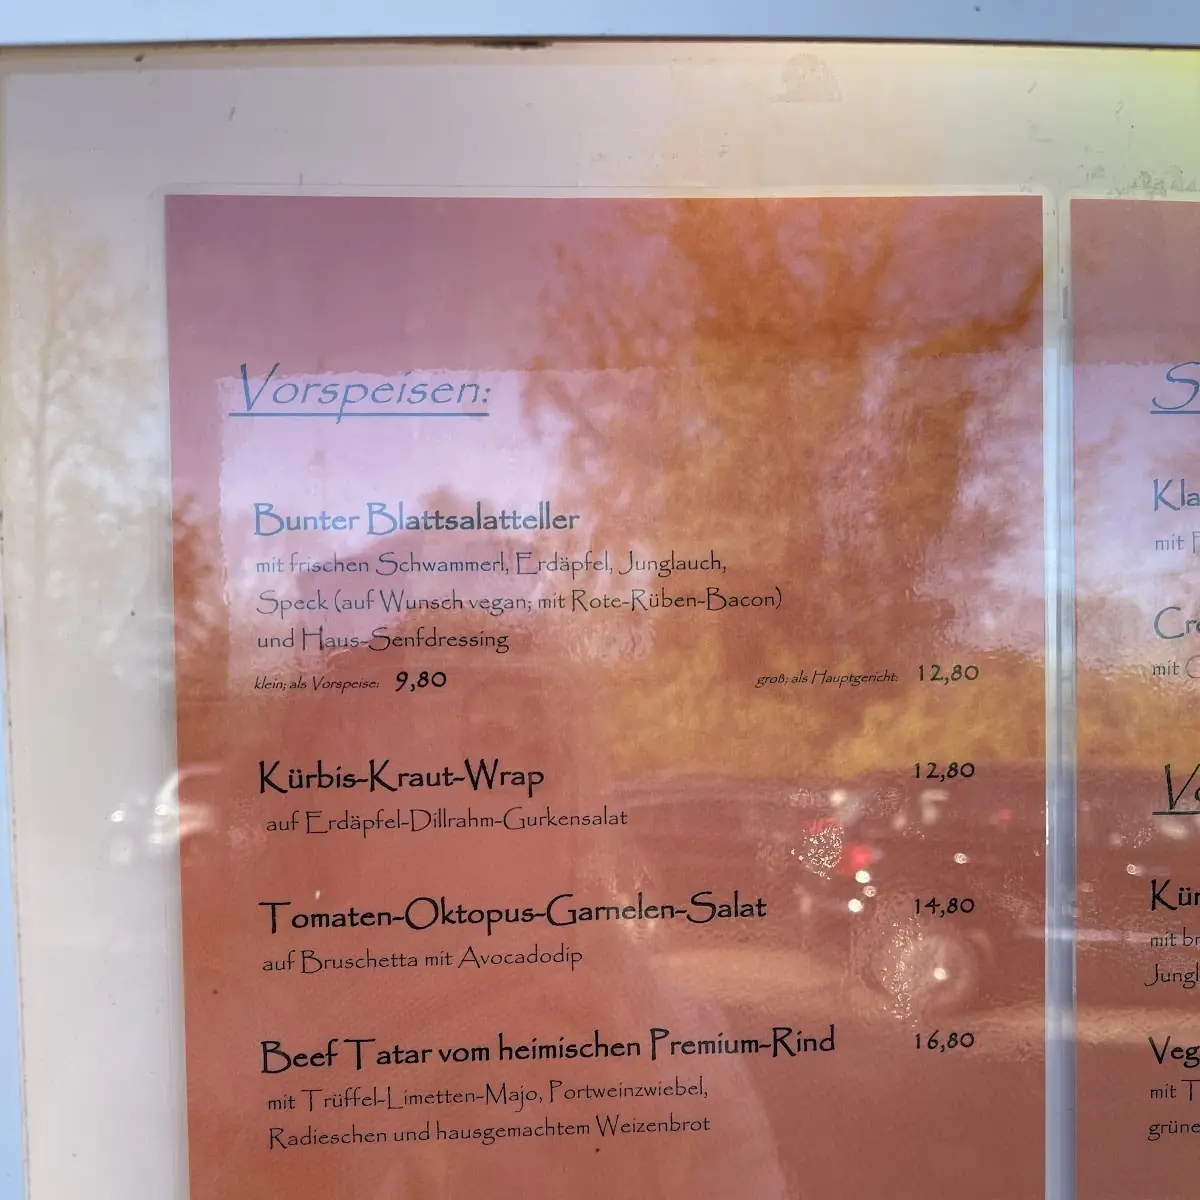 Vorspeisen:
Bunter Blattsalatteller
mit frischen Schwammerl, Erdäpfel, Junglauch,
Speck (auf Wunsch vegan; mit Rote-Rüben-Bacon)
und Haus-Senfdressing
klein; als Vorspeise: 9,80 groß; als Hauptgericht: 12,80
Kürbis-Kraut-Wrap 12,80
auf Erdäpfel-Dillrahm-Gurkensalat
Tomaten-Oktopus-Garnelen-Salat 14,80
auf Bruschetta mit Avocadodip
Beef Tatar vom heimischen Premium-Rind 16,80
mit Trüffel-Limetten-Majo, Portweinzwiebel,
Radieschen und hausgemachtem Weizenbrot
mit
mit
mit